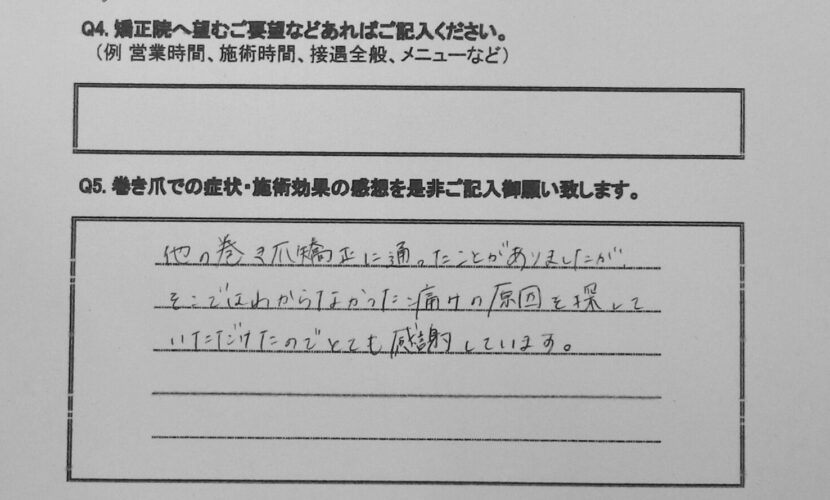 Q4. 矯正院へ望むご要望などあればご記入ください。
（例 営業時間、施術時間、接遇全般、メニューなど）
Q5. 巻き爪での症状・施術効果の感想を是非ご記入御願い致します。
他の巻き爪矯正に通ったことがありましたが、
そこではわからなかった痛みの原因を探して
いただけたのでとても感謝しています。